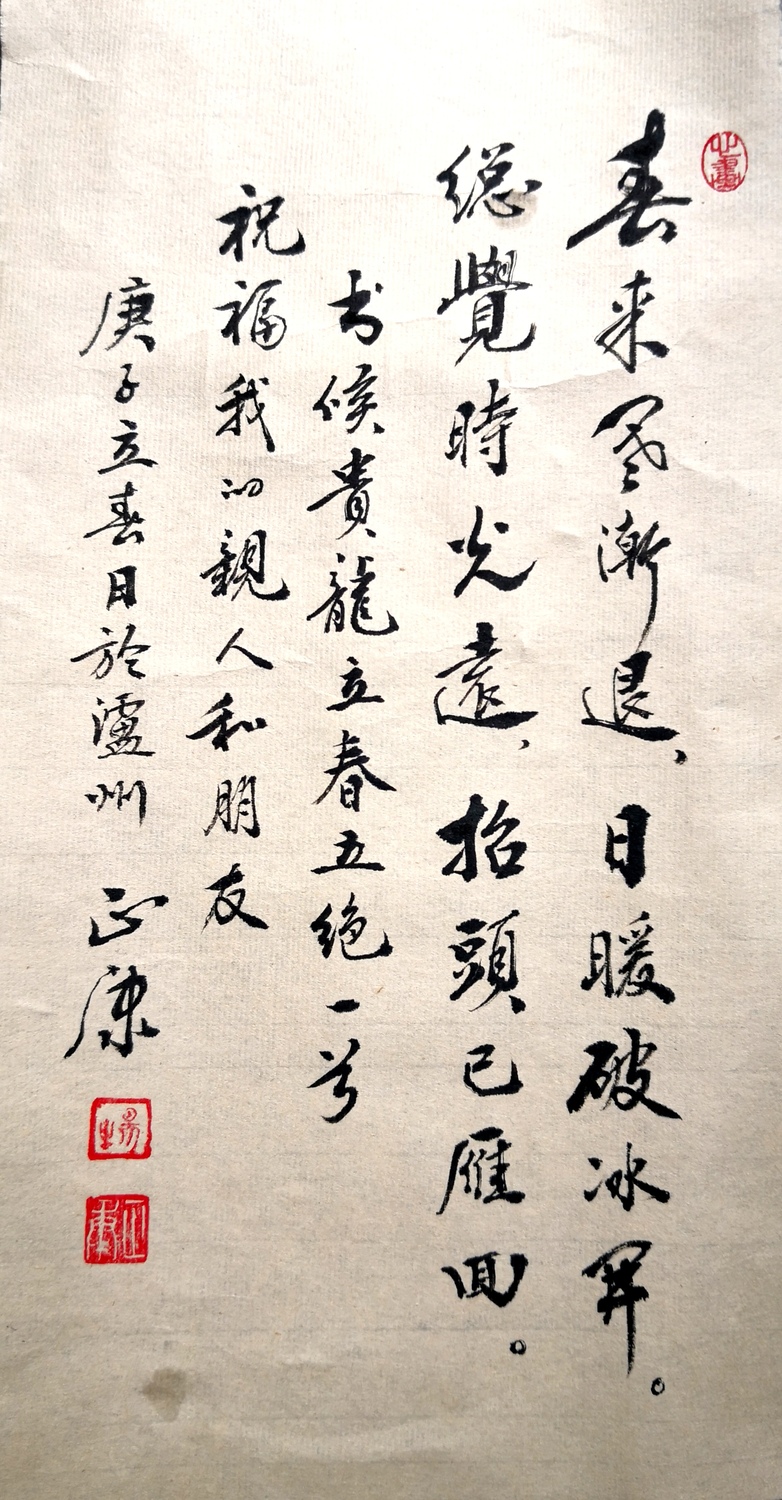 春来寒漸退，日暖破冰開。
總覺時光遠，抬頭已雁回。
书候貴龍立春五绝一首
祝福我的親人和朋友
庚子立春日於瀘州 正康
正康